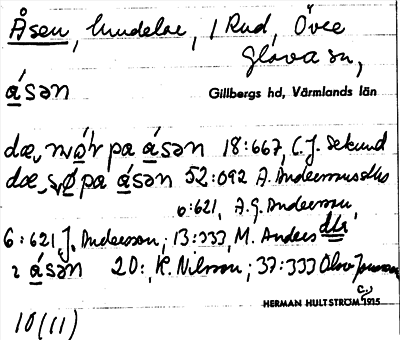 Åsen, hemdelar, i Rud, Övre
Glava sn,
ásən
Gillbergs hd, Värmlands län
pa ásən 18:667, C.J. Sekund
pa ásən 52:092 A. Andersson
6:621, A.G. Andersson,
6:621 J. Andersson; 13:333, M. Anders dtr,
ı ásən 20:, K. Nilsson; 37:333 Olov Jonsson
HERMAN HULTSTRÖM c. 1915
10(11)